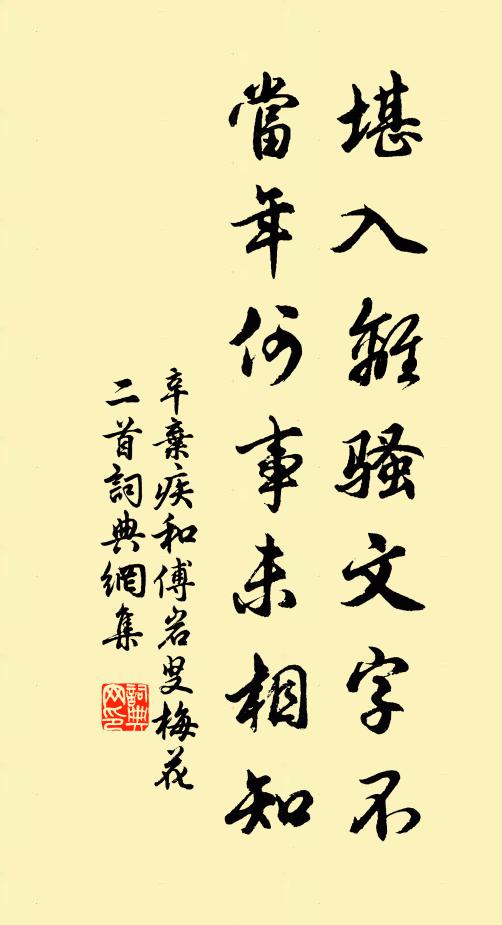 堪入離騷文字不
當年何事未相知
辛棄疾和傅岩叟梅花
二首詞典網集
詞典
网印